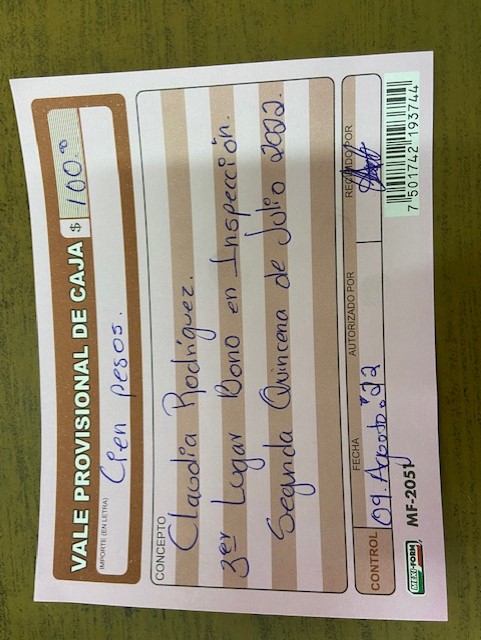 VALE PROVISIONAL DE CAJA $ 100.00
IMPORTE (EN LETRA) Cien pesos.
CONCEPTO
Claudia Rodríguez.
3er Lugar Bono en Inspección.
Segunda Quincena de Julio 2022.
CONTROL FECHA AUTORIZADO POR RECIBIDO POR
09. Agosto. 22
MEXI-FORM MF-2051
7 501742 193744